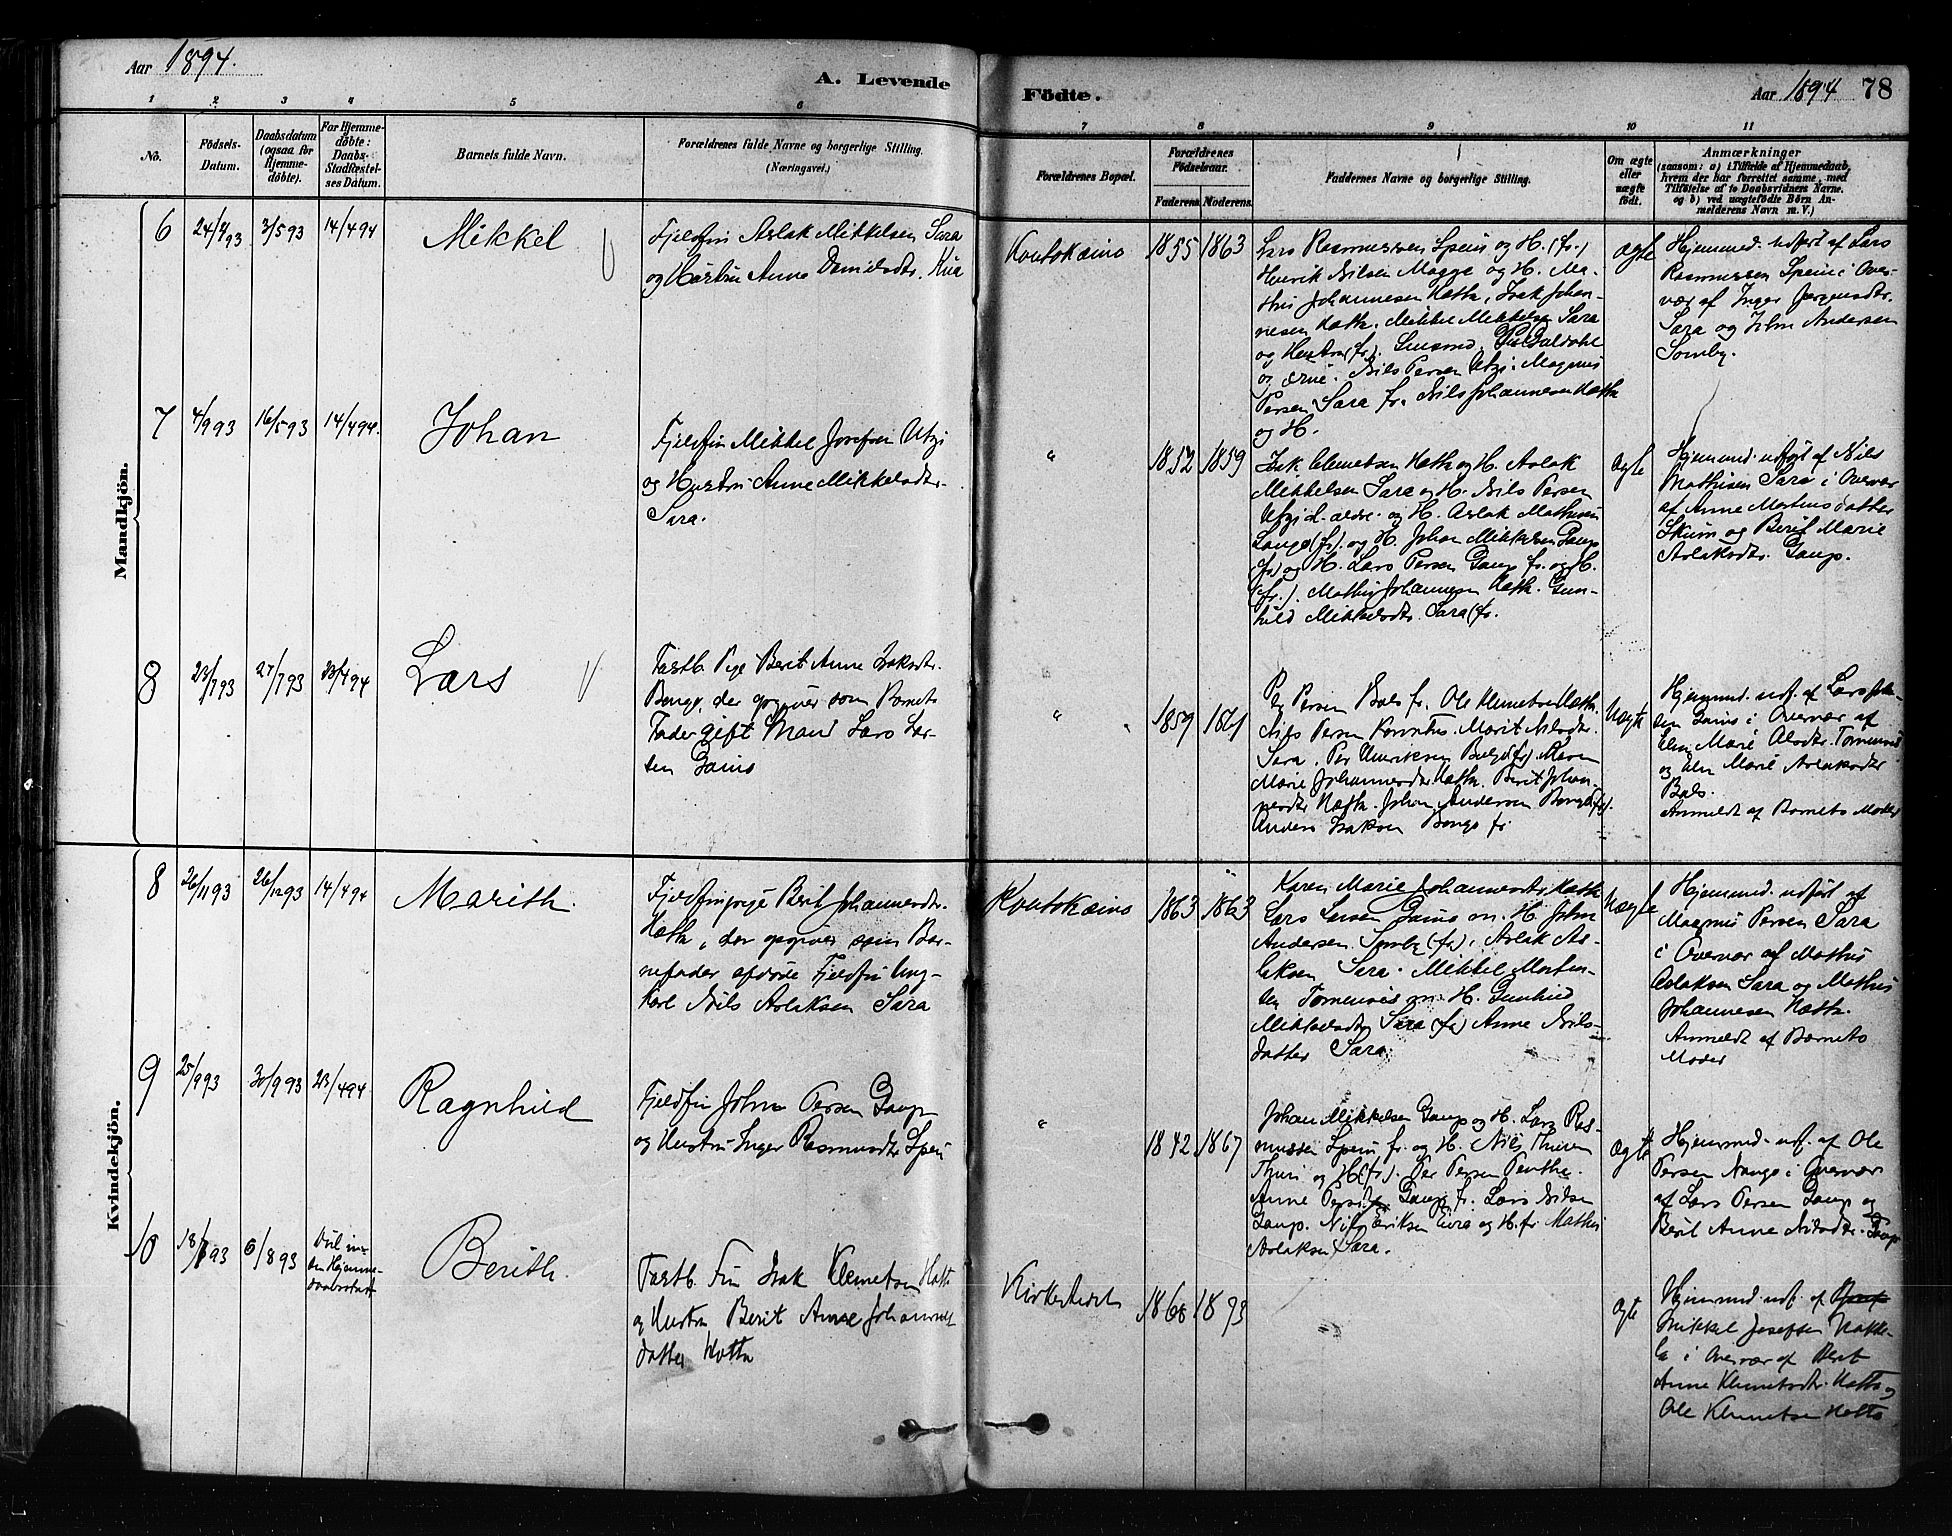 Aar 1894.
A. Levende
Födte.
Aar 1894 78
1 2 3 4 5 6 7 8 9 10 11
No.
Födsels-
Datum.
Daabsdatum
(ogsaa for
Hjemme-
döbte).
For Hjemme-
döbte:
Daabs-
Stadfæstel-
ses Datum.
Barnets fulde Navn.
Forældrenes fulde Navne og borgerlige Stilling.
(Næringsvei.)
Forældrenes Bopæl.
Forældrenes
Födselsaar.
Faderens. Moderens.
Faddernes Navne og borgerlige Stilling.
Om ægte
eller
uægte
födt.
Anmærkninger
(saasom: a) i Tilfælde af Hjemmedaab,
hvem der har forrettet samme, med
Tilföielse af to Daabsvidners Navne.
og b) ved uægtefödte Börn An-
melderens Navn m. V.)
Mandkjön.
6 24/4 93 3/5 93 14/4 94 Mikkel
Fjeldfin Aslak Mikkelsen Sara
og Hustru Anne Danielsdtr.
Koutokeino 1855 1863
Lars Rasmussen Spein og H. (fr.)
Henrik Nilsen Magge og H. Ma-
this Johannesen Hætta, Isak Johan-
nesen Hætta. Mikkel Mikkelsen Sara
og Hustru (fr).
Nils Persen Utzi. Magnus
Persen Sara fr. Nils Johannesen Hætta
og H.
ægte
Hjemmed. udført af Lars
Rasmussen Spein i Over-
vær af Inger Jørgensdtr.
Sara og John Andersen
Somby.
7 4/9 93 16/5 93 14/4 94. Johan
Fjeldfin Mikkel Josefsen Utzi
og Hustru Anne Mikkelsdtr.
Sara.
" 1852 1859
Isak Clemetsen Hætta og H. Aslak
Mikkelsen Sara og H. Nils Persen
Utzi d. ældre og H. Aslak Mathisen
(fr). og H. Johan Mikkelsen Gaup
(fr) og H. Lars Persen Gaup fr. og H.
(fr.). Mathis Johannesen Hætta. Gun-
hild Mikkelsdtr. Sara (fr.
ægte
Hjemmed. udført af Nils
Mathisen Sara i Overvær
af Anne Mortensdatter
Skum og Berit Marie
Aslaksdtr. Gaup.
8 23/7 93 27/7 93 23/4 94 Lars
Fastb. Pige Berit Anne Isaksdtr.
Bongo, der opgiver som Barnets
Fader gift Mand Lars Lar-
sen Gaino
" 1859
Per Persen Bals fr. Ole Klemetsen Hætta.
Nils Persen Marit Nilsdtr.
Sara. Per Henriksen (fr) Karen
Marie Johannesdtr Hætta Berit Johan-
nesdtr Hætta. Johan Andersen Bongo (fr).
Anders Isaksen Bongo fr.
Uægte
Hjemmed. udf. af Lars
Gaino i Overvær af
Elen Marie Olsdtr. Tornensis
og Elen Marie Aslaksdtr
Bals.
Anmeldt af Barnets Moder
Kvindekjön.
8 26/11 93 26/12 93 14/4 94 Marith.
Fjeldfinpige Berit Johannesdtr.
Hætta, der opgiver som Bar-
nefader afdøde Fjeldfin Ung-
karl Nils Aslaksen Sara
Koutokeino 1863 1863
Karen Marie Johannesdtr Hætta
Lars Larsen Gaino m. H. John
Andersen Somby (fr), Aslak As-
laksen Sara. Mikkel Morten-
sen Tornensis m. H. Gunhild
Mikkelsdtr Sara (fr) Anne Nils-
datter Sara.
Uægte
Hjemmed. udført af
Magnus Persen Sara
i Overvær af Mathis
Aslaksen Sara og Mathis
Johannesen Hætta.
Anmeldt af Barnets
Moder
9 25/9 93 30/9 93 23/4 94 Ragnhild
Fjeldfin John Persen Gaup
og Hustru Inger Rasmusdtr Spein
" 1842 1867
Johan Mikkelsen Gaup og H. Lars Ras-
mussen Spein fr. og H. Nils Thuren
Thuri og H (fr). Per Persen Pentha.
Anne Persdtr Gaup fr. Lars Nilsen
Gaup. Nils Eriksen Eira og H. fr. Mathis
Aslaksen Sara.
ægte
Hjemmed. udf. af Ole
Persen Nango i Overvær
af Lars Persen Gaup og
Berit Anne Nilsdtr. Gaup
10 18/7 93 6/8 93 Berith.
Fastb. Fin Isak Klemetsen Hætta
og Hustru Berit Anne Johannes-
datter Hætta
Kirkestedet 1868 1873
ægte
Hjemmed. udf. af
Mikkel Josefsen Nakke-
la i Overvær af Berit
Anne Klemetsdtr. Hætta og
Ole Klemetsen Hætta